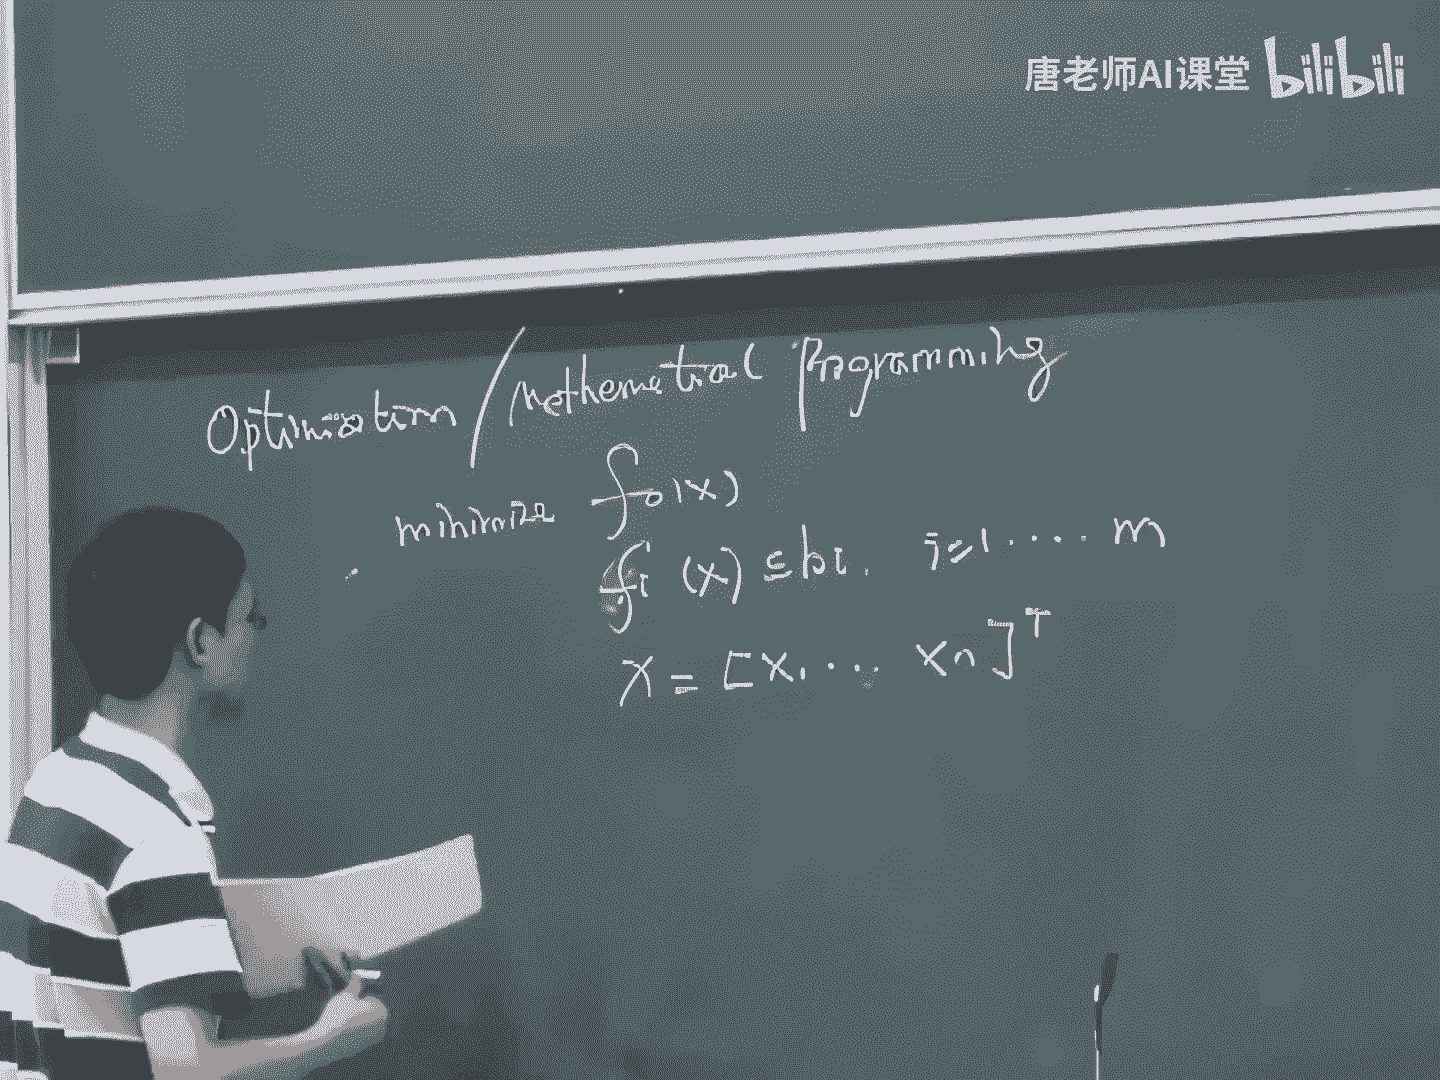 唐老师AI课堂 bilibili
Optimization / Mathematical Programming
minimize f₀(x)
fᵢ (x) ≤ bᵢ. i=1 .... m
x = [x₁ ... xₙ]ᵀ